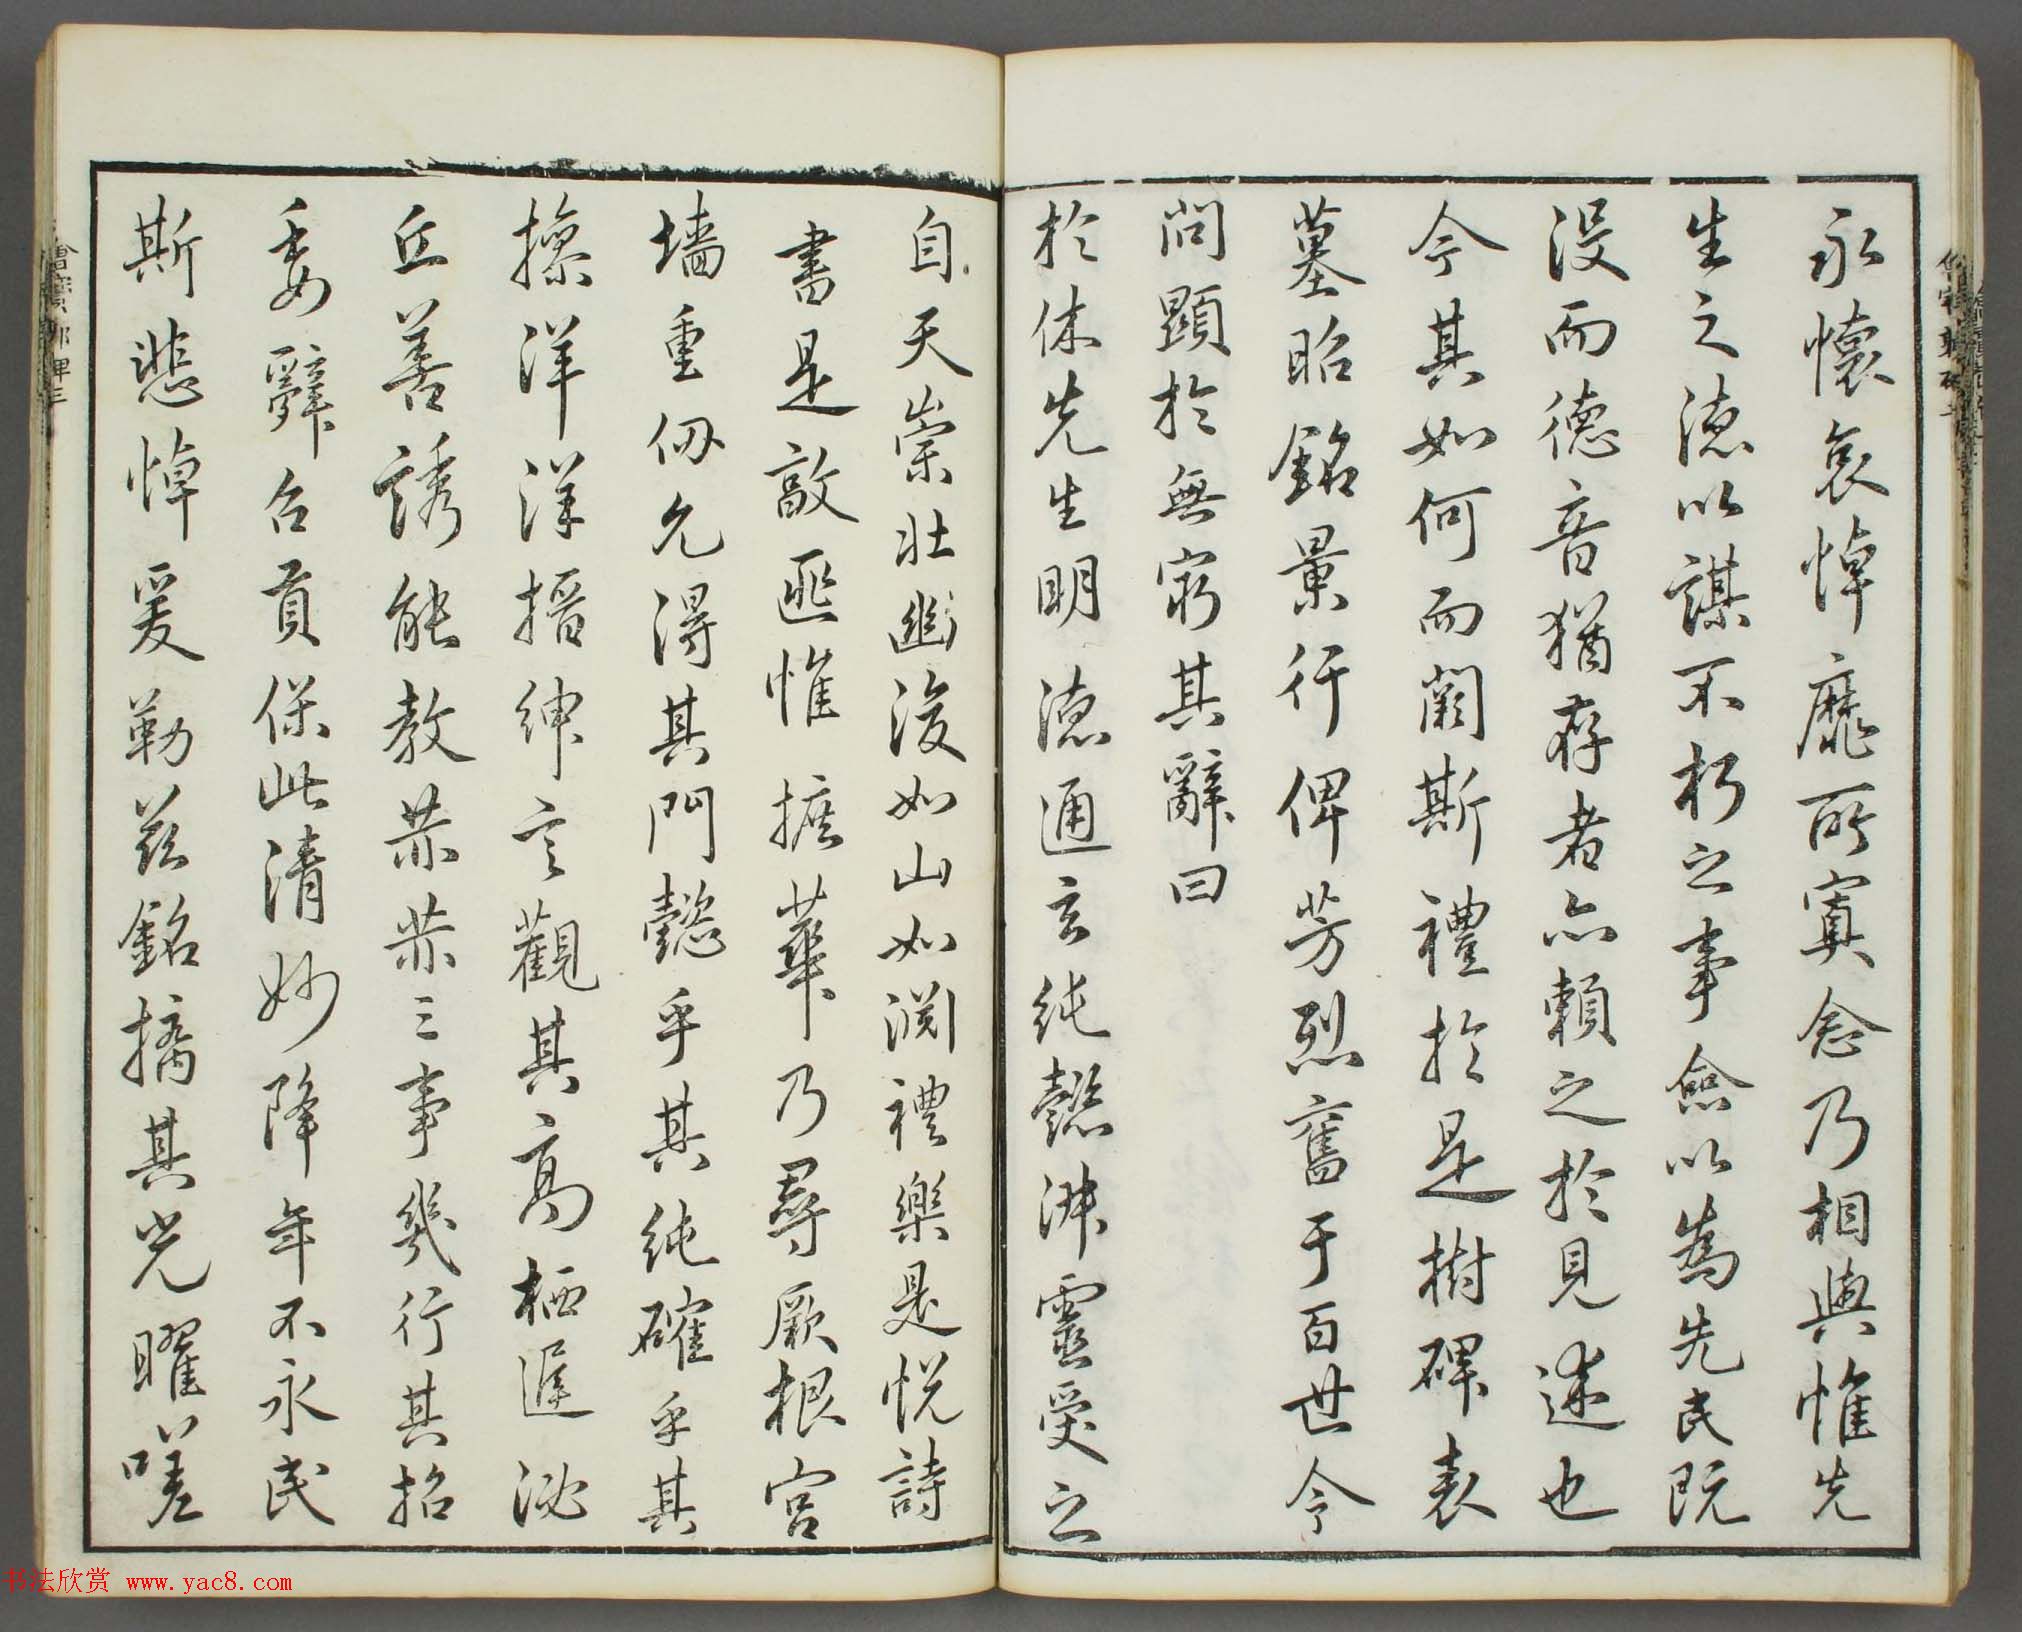 永懷哀悼靡所寘念乃相與惟先
生之德以謀不朽之事僉以為先民既
没而德音猶存者亦賴之於見述也
今其如何而闕斯禮於是樹碑表
墓昭銘景行俾芳烈奮于百世令
問顯於無窮其辭曰
於休先生明德通玄純懿淑靈受之
自天崇壯幽浚如山如淵禮樂是悅詩
書是敦匪惟摭華乃尋厥根宮
墻重仞允得其門懿乎其純確乎其
操洋洋搢紳言觀其高栖遲泌
丘善誘能教赫赫三事幾行其招
委辭召貢保此清妙降年不永民
斯悲悼爰勒茲銘摛其光曜嗟
书法欣赏 www.yac8.com